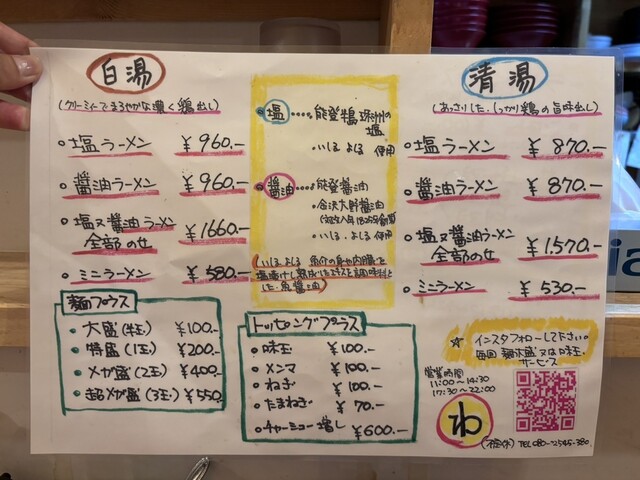 白湯
(クリーミーでまろやかな濃く鶏出し)
・塩ラーメン ¥960.-
・醤油ラーメン ¥960.-
・塩又醤油ラーメン
全部のせ ¥1660.-
・ミニラーメン ¥580.-
麺プラス
・大盛(半玉) ¥100.-
・特盛(1玉) ¥200.-
・メガ盛(2玉) ¥400.-
・超メガ盛(3玉) ¥550.
・塩・・・・能登 珠洲の
塩
・いしる よしる 使用
・醤油・・・能登醤油
・金沢大野醤油
・いしる.よしる使用
(いしる よしる 魚介の身や内臓を
塩漬けし 熟成
した 魚醤油)
トッピングプラス
・味玉 ¥100.-
・メンマ ¥100.-
・ねぎ ¥100.-
・たまねぎ ¥70.-
・チャーシュー増し ¥600.-
清湯
(あっさりした.しっかり鶏の旨味出し)
・塩ラーメン ¥870.-
・醤油ラーメン ¥870.-
・塩又醤油ラーメン
全部のせ ¥1,570.-
・ミニラーメン ¥530.-
☆ インスタフォローして下さい。
毎回 麺大盛又は味玉
サービス
営業時間
11:00~14:30
17:30~22:00
わ
TEL 080-2545-380